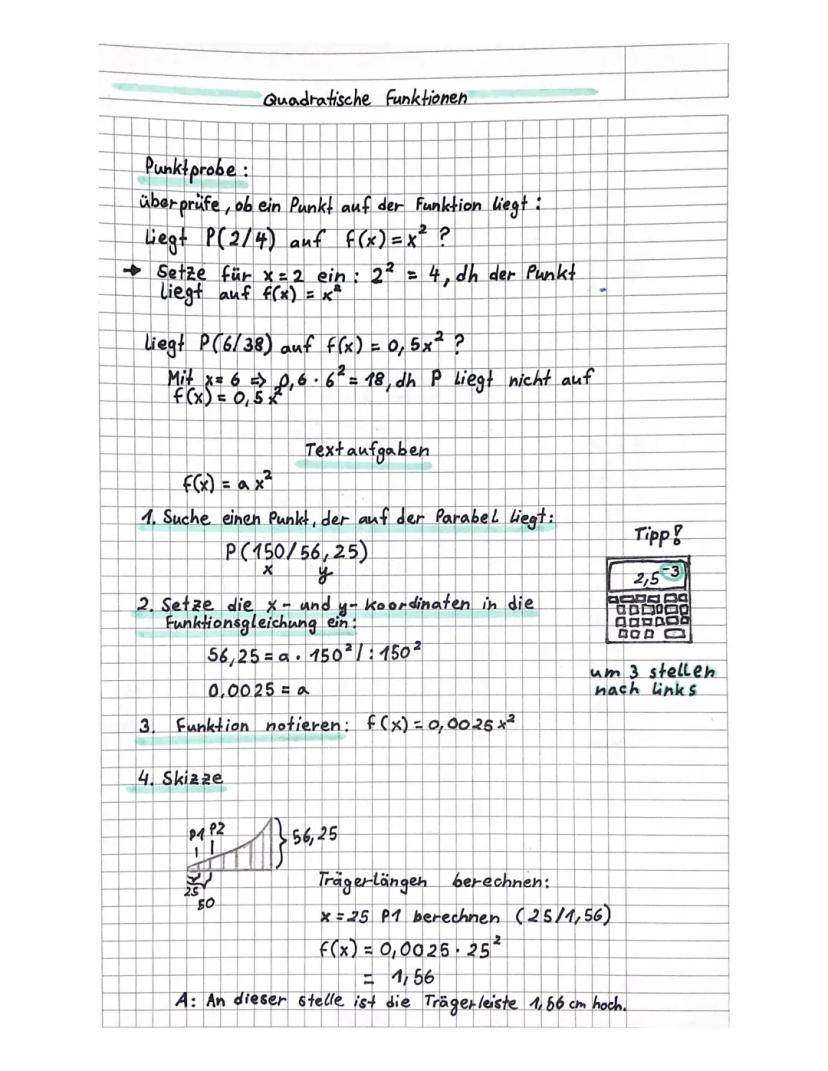 Quadratische Funktionen
Punktprobe:
überprüfe, ob ein Punkt auf der Funktion liegt:
liegt P(2/4) auf f(x) = x² ?
→ Setze für x = 2 ein : 2² = 4, dh der Punkt
liegt auf f(x) = x²
liegt P(6/38) auf f(x) = 0,5x² ?
Mit x = 6 => 0,6 · 6² = 18, dh P liegt nicht auf
f(x) = 0,5x²
Textaufgaben
f(x) = ax²
1. Suche einen Punkt, der auf der Parabel liegt:
P(150/56,25)
x y
2. Setze die x- und y-koordinaten in die
Funktionsgleichung ein:
56,25 = a · 150² /: 150²
0,0025 = a
Tipp!
2,5⁻³
um 3 stellen
nach links
3. Funktion notieren: f(x) = 0,0025x²
4. Skizze
P1 P2
56,25
25
50
Trägerlängen berechnen:
x = 25 P1 berechnen (25/1,56)
f(x) = 0,0025 · 25²
= 1,56
A: An dieser stelle ist die Trägerleiste 1,56 cm hoch.